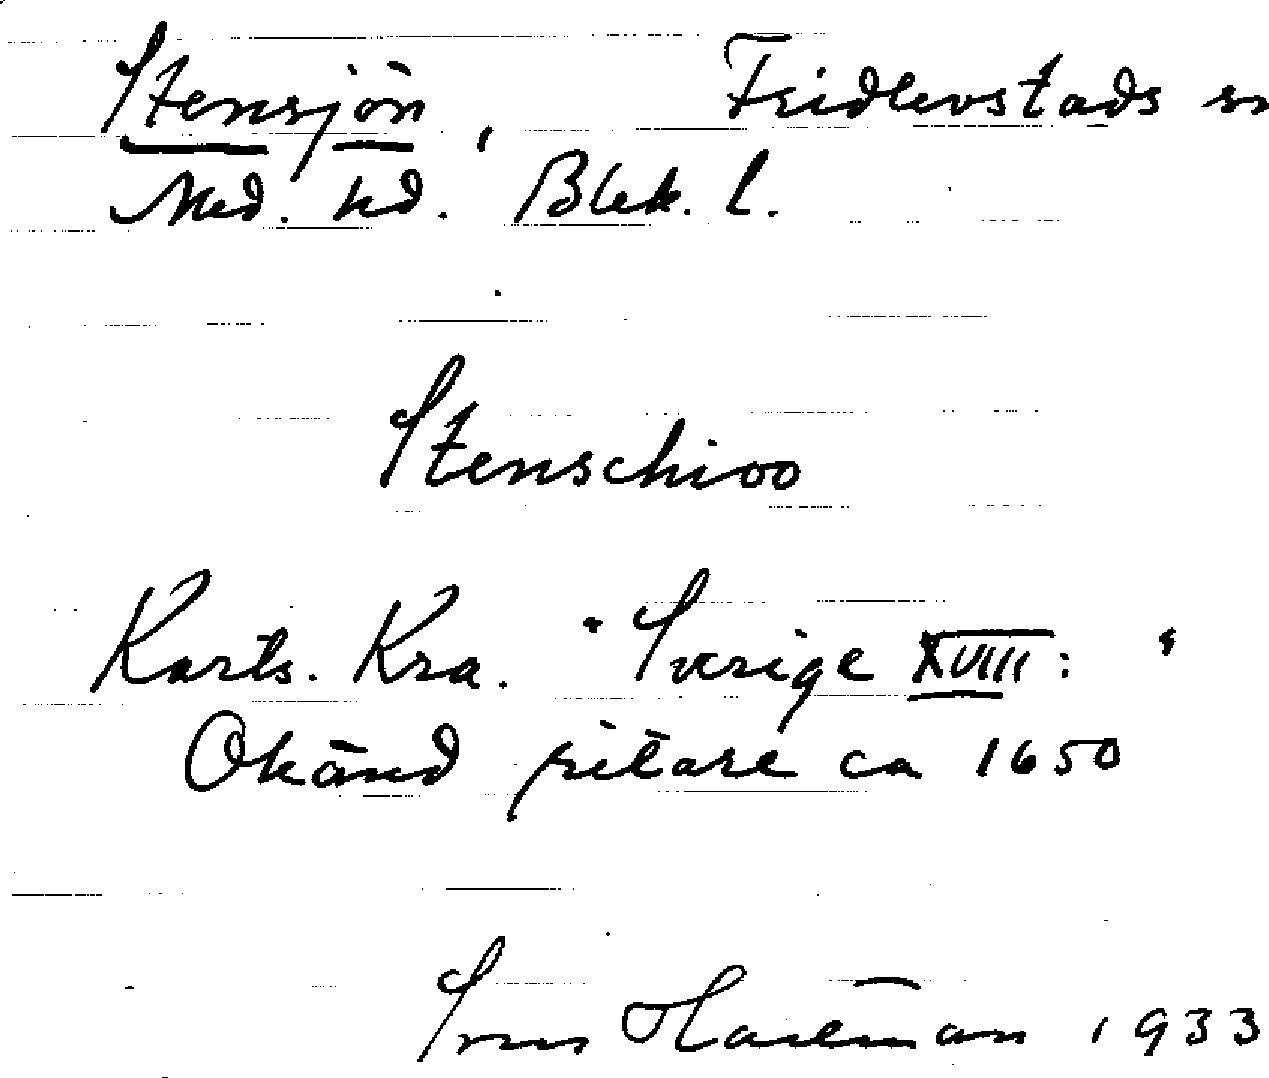 Stensjön, Fridlevstads sn
Med. hd. Blek. l.
Stenschioo
Karts. Kra. "Sverige XVIII: "
Okänd ritare ca 1650
Sven 1933